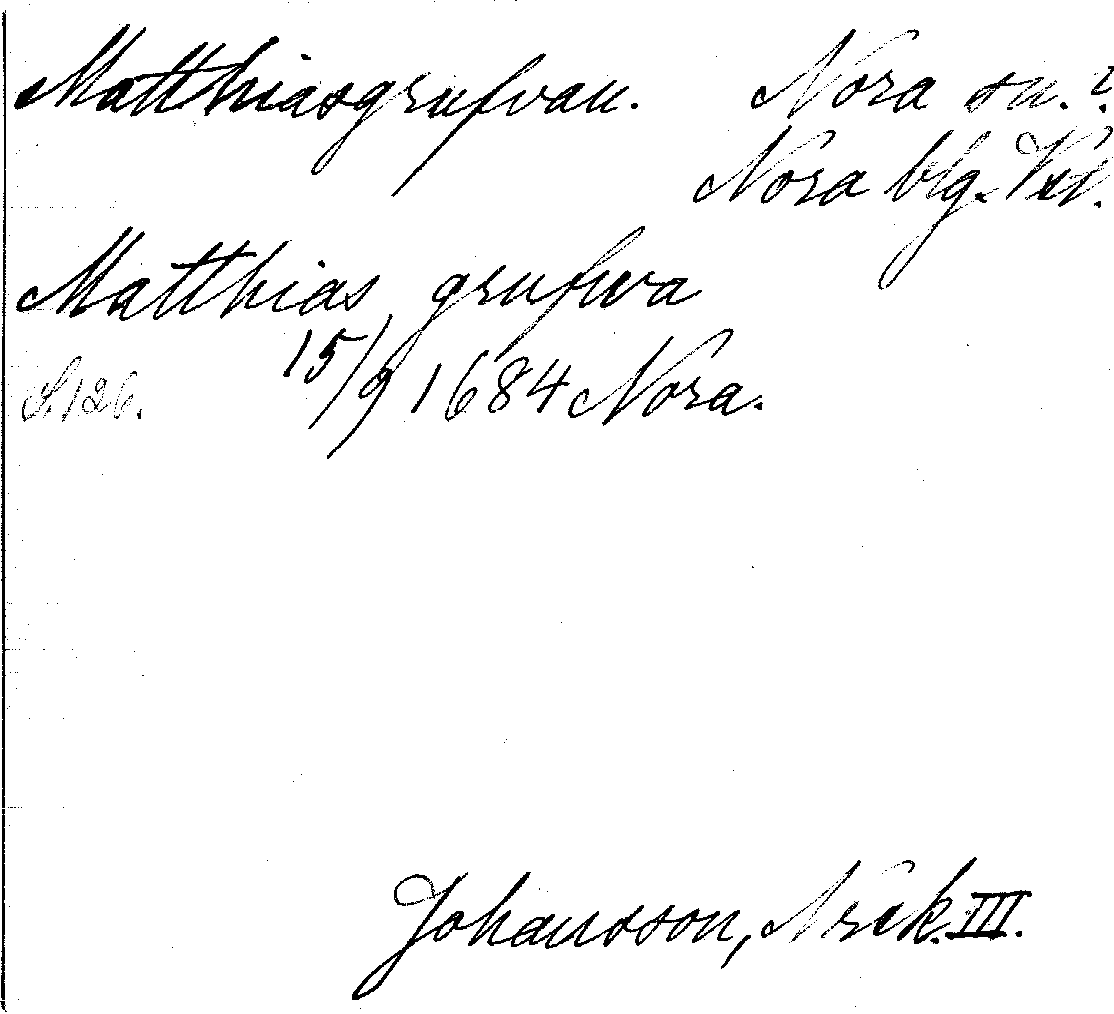 Matthiasgrufvan. Nora sn.?
Nora blg. Vstl.
Matthias grufwa
S. 126. 15/9 1684 Nora.
Johansson, Nrik. III.